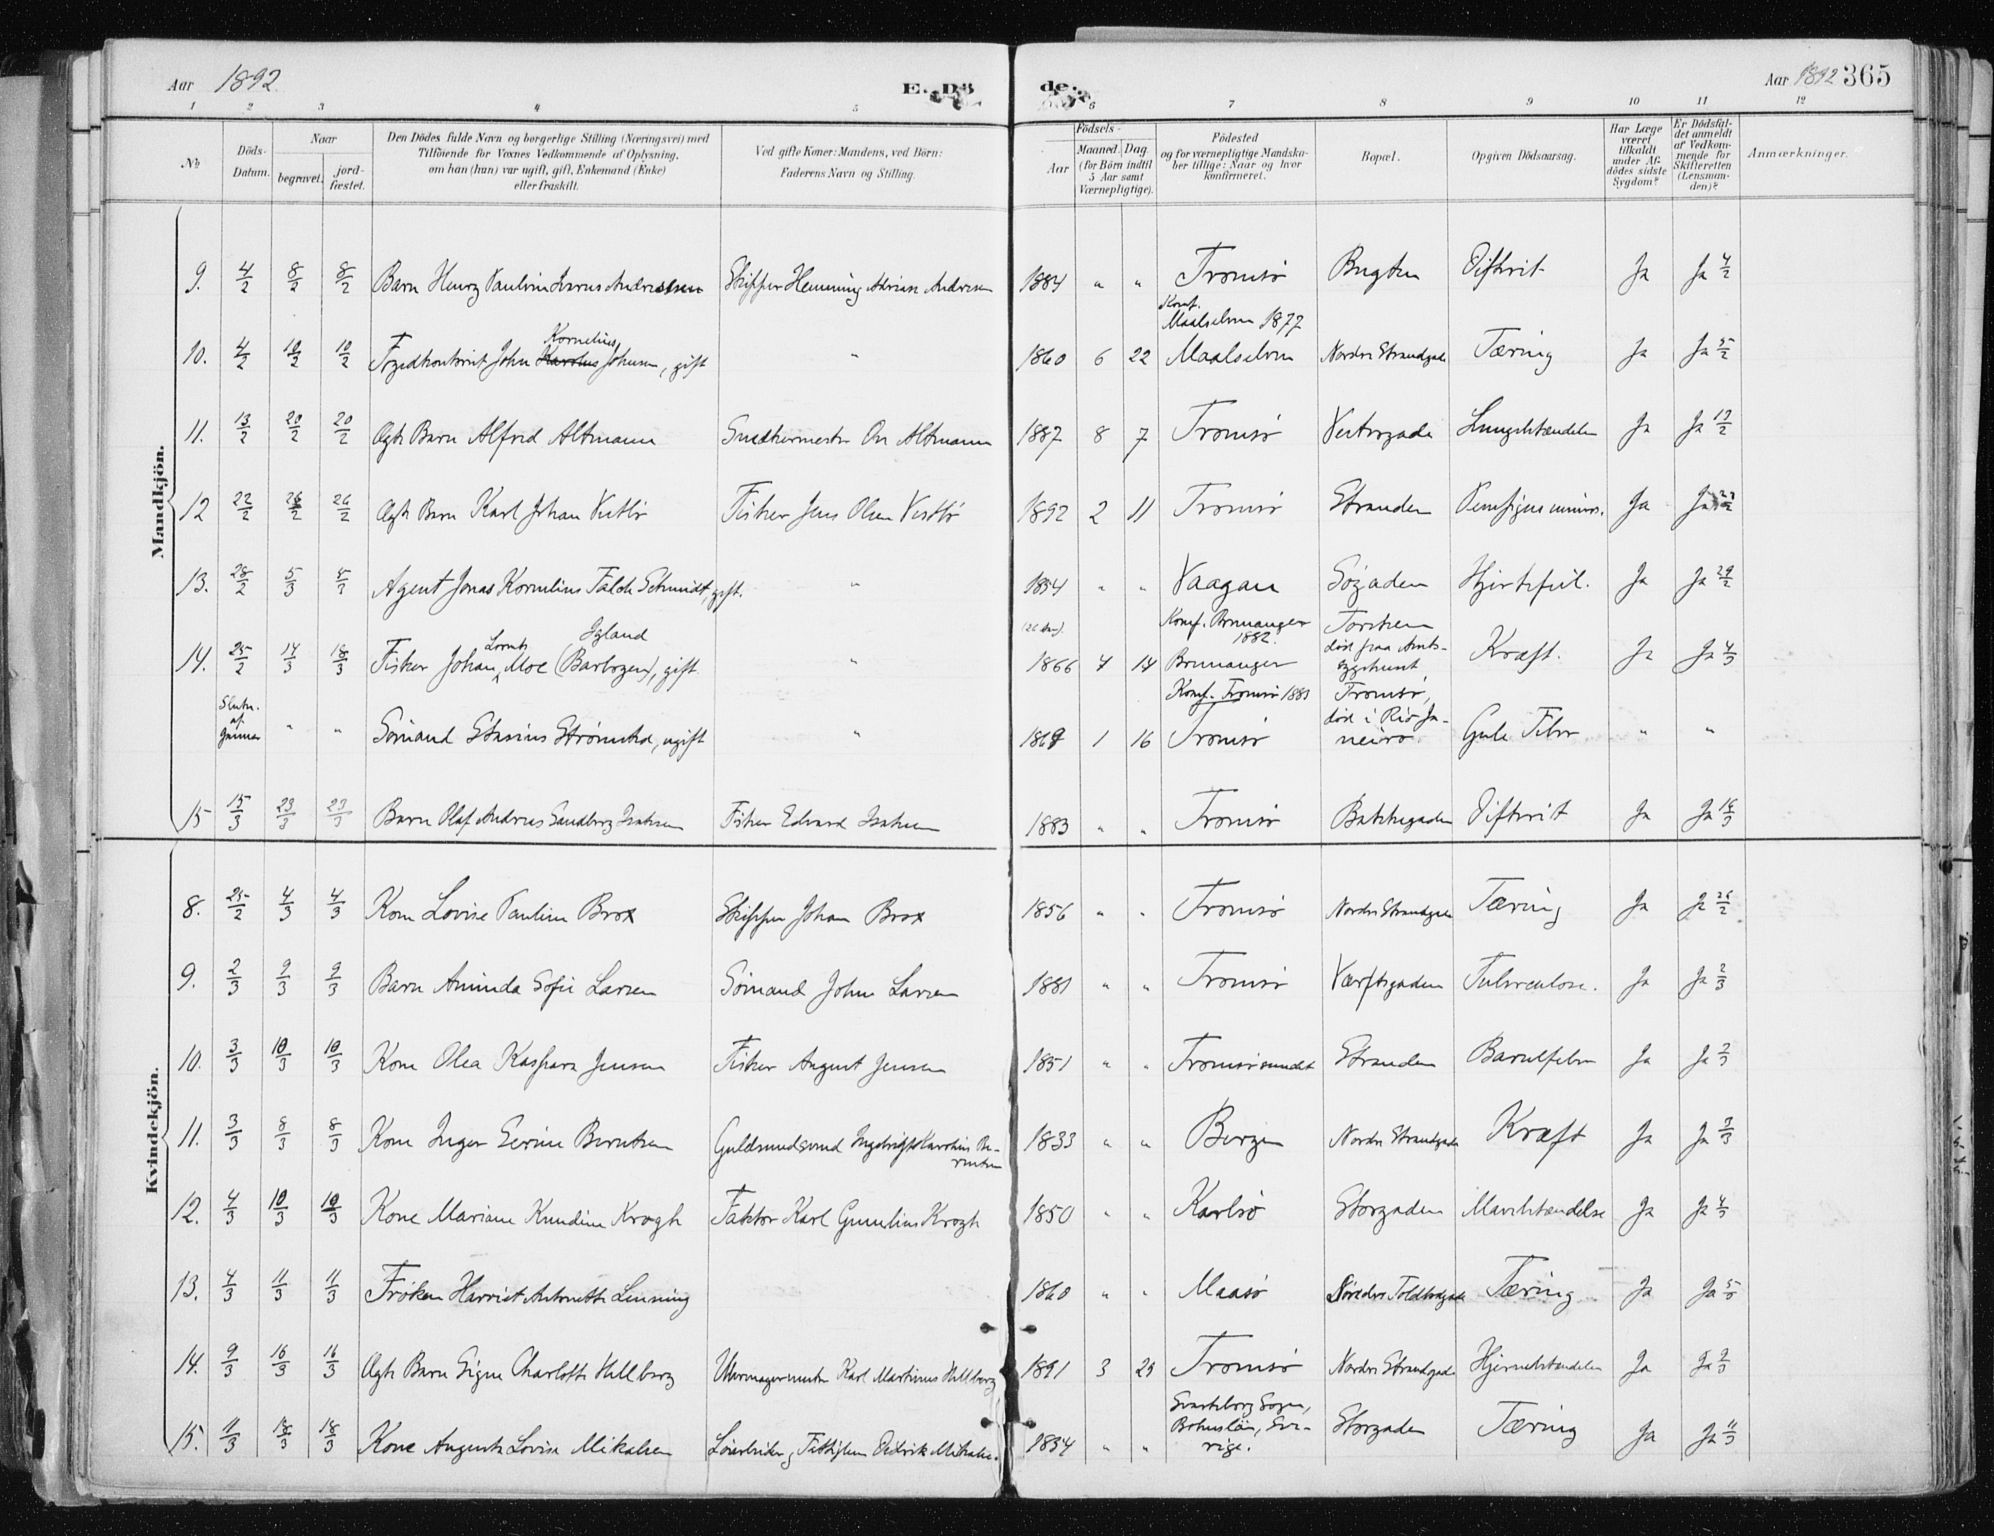 Aar 1892. E. Döde. Aar 1892 365
1 2 3 4 5 6 7 8 9 10 11 12
No.
Döds-Datum.
Naar
begravet.
jord-fæstet.
Den Dödes fulde Navn og borgerlige Stilling (Næringsvei) med
Tilföiende for Voxnes Vedkommende af Oplysning,
om han (hun) var ugift, gift, Enkemand (Enke)
eller fraskilt.
Ved gifte Koner: Mandens, ved Börn:
Faderens Navn og Stilling.
Födsels-
Aar
Maaned. Dag.
(for Börn indtil
5 Aar samt
Værnepligtige).
Födested
og for værnepligtige Mandska-
ber tillige: Naar og hvor
konfirmeret.
Bopæl.
Opgiven Dödsaarsag.
Har Læge
været
tilkaldt
under Af-
dödes sidste
Sygdom?
Er Dödsfal-
det anmeldt
af Vedkom-
mende for
Skifteretten
(Lensman-
den)?
Anmærkninger.
Mandkjön.
9. 4/2 8/2 8/2 Barn Henry Paulin Andresen Skipper Henning Andresen 1884 " " Tromsö Bugten Difterit Ja Ja 4/2
Konf.
Maalselven 1877
Kornelius
10. 4/2 10/2 10/2 John Johnsen, gift " 1860 6 22 Maalselven Nordre Strandgade Tæring Ja Ja 5/2
11. 13/2 20/2 20/2 Ægte Barn Alfred Altmann Snedkermester Altmann 1887 8 7 Tromsö Vestregade Lungebetændelse Ja Ja 17/2
12 22/2 26/2 26/2 Ægte Barn Karl Johan Vestlö Fisker Jens Olsen Vestlö 1892 2 11 Tromsö Stranden Ja Ja
13. 28/2 5/3 5/3 Agent Jonas Kornelius Falch Schmidt, gift. " 1834 " " Vaagan Sögaden Hjertefeil. Ja Ja 29/2
Konf. Bremanger
1882.
Igland
Lornts
14. 25/2 14/3 18/3 Fisker Johan Moe (Barbogen), gift " 1866 4 14 Bremanger Torsken
död paa Amts-
sygehuset Kræft. Ja Ja 4/3
Slutn.
af
Januar " " Sömand Strömsted, ugift " 1869 1 16 Konf. Tromsö 1883
Tromsö Tromsö,
död i Rio Ja-
neiro Gule Feber " "
15 15/3 23/3 23/3 Barn Olaf Andreas Sandberg Isaksen Fisker Edvard Isaksen 1883 " " Tromsö Bakkegaden Difterit Ja Ja 16/3
Kvindekjön.
8. 25/2 4/3 4/3 Kone Lovise Pauline Brox Skipper Johan Brox 1856 " " Tromsö Nordre Strandgade Tæring Ja Ja 26/2
9. 2/3 9/3 9/3 Barn Aminda Sofie Larsen Sömand John Larsen 1881 " " Tromsö Værftsgaden Tuberculose. Ja Ja 2/3
10. 3/3 10/3 10/3 Kone Olea Kaspara Jensen Fisker August Jensen 1851 " " Tromsösundet Stranden Barselfeber Ja Ja 3/3
11. 3/3 8/3 8/3 Kone Inger Serine Berntsen Guldsmedsvend Ingebrigt Be-
rntsen 1833 " " Bergen Nordre Strandgade Kræft Ja Ja 3/3
12. 4/3 10/3 10/3 Kone Mariane Knudine Krogh Faktor Karl Krogh 1850 " " Karlsö Storgaden Mavebetændelse Ja Ja 4/3
13. 4/3 11/3 11/3 Fröken Harriet Antonette Lenning 1860 " " Maasö Söndre Toldbodgade Tæring Ja Ja 5/3
14. 9/3 16/3 16/3 Ægte Barn Signe Charlotte Hellberg Uhrmagermester Karl Martinus Hellberg 1891 3 25 Tromsö Nordre Strandgade Hjernebetændelse Ja Ja 9/3
15. 11/3 18/3 18/3 Kone Augusta Lovise Mikalsen Löiarbeider, Mikalsen. 1834 " " Svarteborg Sogn,
Bohuslän, Sve-
rige. Storgaden Tæring Ja Ja 11/3